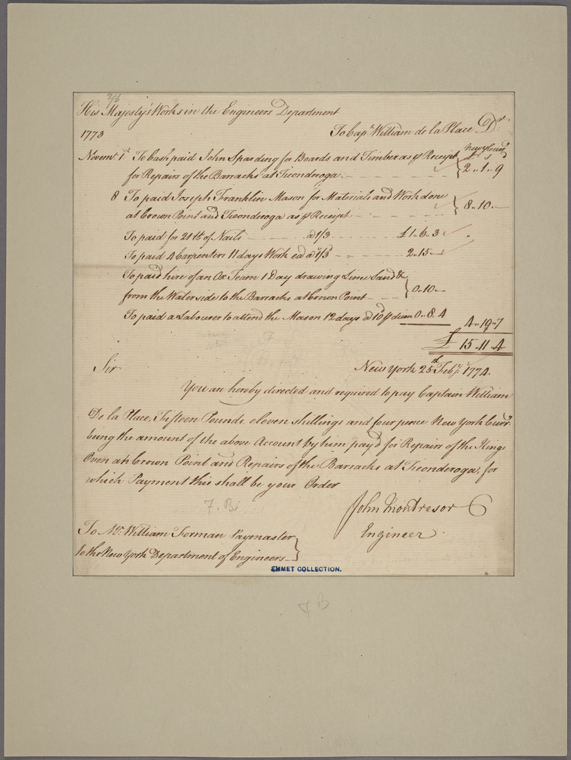 His Majesty's Works in the Engineers Department
To Capt. William de la Place Dr
1773
New York Curr.y
Novemr 1st To Cash paid John Sparding for Boards and Timber as pr Receipt
for Repairs of the Barracks at Ticonderoga 2 - 1 - 9
8 To paid Joseph Franklin Mason for Materials and Work done
at Crown Point and Ticonderoga as pr Receipt 8 - 10 -
To paid for 21 lb of Nails @ 1/3 £1. 6. 3
To paid 4 Carpenters 11 days Work ea @ 1/3 2 - 15 -
To paid hire of an Ox Team 1 Day drawing Lime Sand &c
from the Water side to the Barracks at Crown Point 0 - 10 -
To paid a Labourer to attend the Mason 12 days @ pr diem 0 - 8. 4
4 - 19 - 7
£ 15 - 11 - 4
New York 25th Feby. 1774.
Sir
You are hereby directed and required to pay Captain William
De la Place, Fifteen Pounds eleven shillings and four pence New York Curry.
being the amount of the above Account by him pay'd for Repairs of the Kings
Oven at Crown Point and Repairs of the Barracks at Ticonderoga, for
which Payment this shall be your Order
John Montresor
Engineer
7. B.
To Mr. William Forman Paymaster
to the New York Department of Engineers
EMMET COLLECTION.
7 B